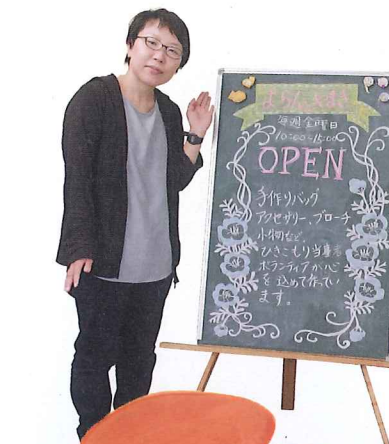 毎週金曜日
10:00~15:00
OPEN
手作りバッグ
アクセサリー、ブローチ
小物など、
ひきこもり当事者
ボランティアが心
を込めて作ってい
ます。